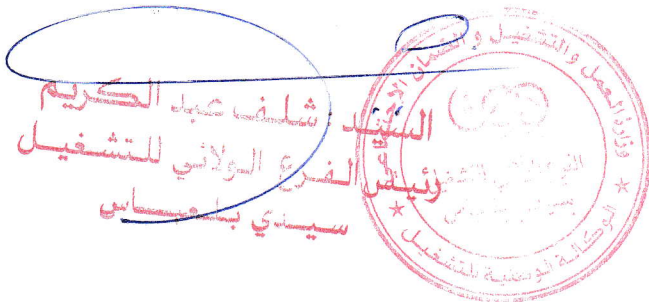 السيد : شلف عبد الكريم
رئيس الفرع الولائي للتشغيل
سيدي بلعباس
وزارة العمل والتشغيل و الضمان الاجتماعي
الوكالة الوطنية للتشغيل
سيدي بلعباس